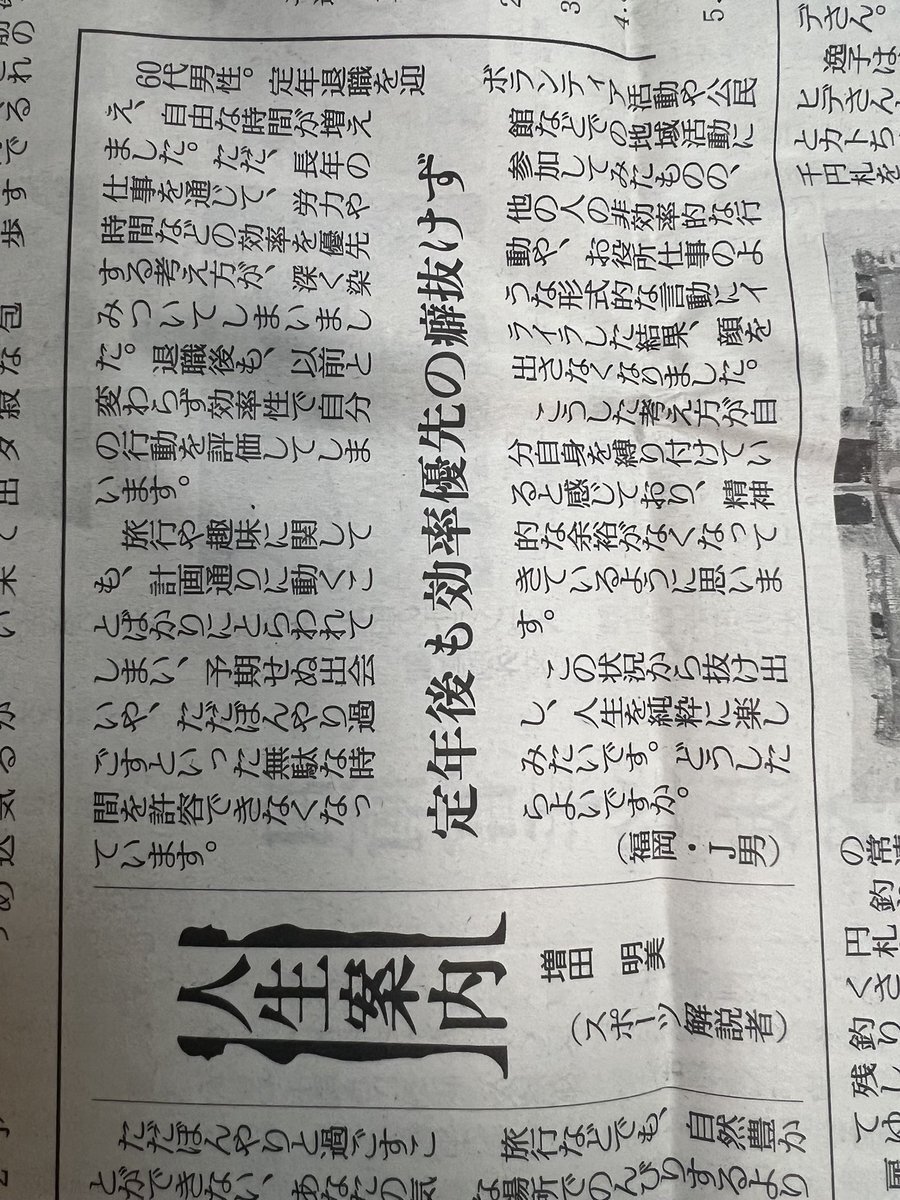 定年後も効率優先の癖抜けず
60代男性。定年退職を迎
え、自由な時間が増え
ました。ただ、長年の
仕事を通じて、労力や
時間などの効率を優先
する考え方が、深く染
みついてしまいまし
た。退職後も、以前と
変わらず効率性で自分
の行動を評価してしま
います。
旅行や趣味に関して
も、計画通りに動くこ
とばかりにとらわれて
しまい、予期せぬ出会
いや、ただぼんやり過
ごすといった無駄な時
間を許容できなくなっ
ています。
ボランティア活動や公民
館などでの地域活動に
参加してみたものの、
他の人の非効率的な行
動や、お役所仕事のよ
うな形式的な言動にイ
ライラした結果、顔を
出さなくなりました。
こうした考え方が自
分自身を縛り付けてい
ると感じており、精神
的な余裕がなくなって
きているように思いま
す。
この状況から抜け出
し、人生を純粋に楽し
みたいです。どうした
らよいですか。
(福岡・J男)
人生案内
増田 明美
(スポーツ解説者)
ただぼんやりと過ごすこ
とができない、あなたの気
旅行などでも、自然豊か
な場所でのんびりするより
デさん。
逸子は
ヒデさん、
とカトち
千円札を